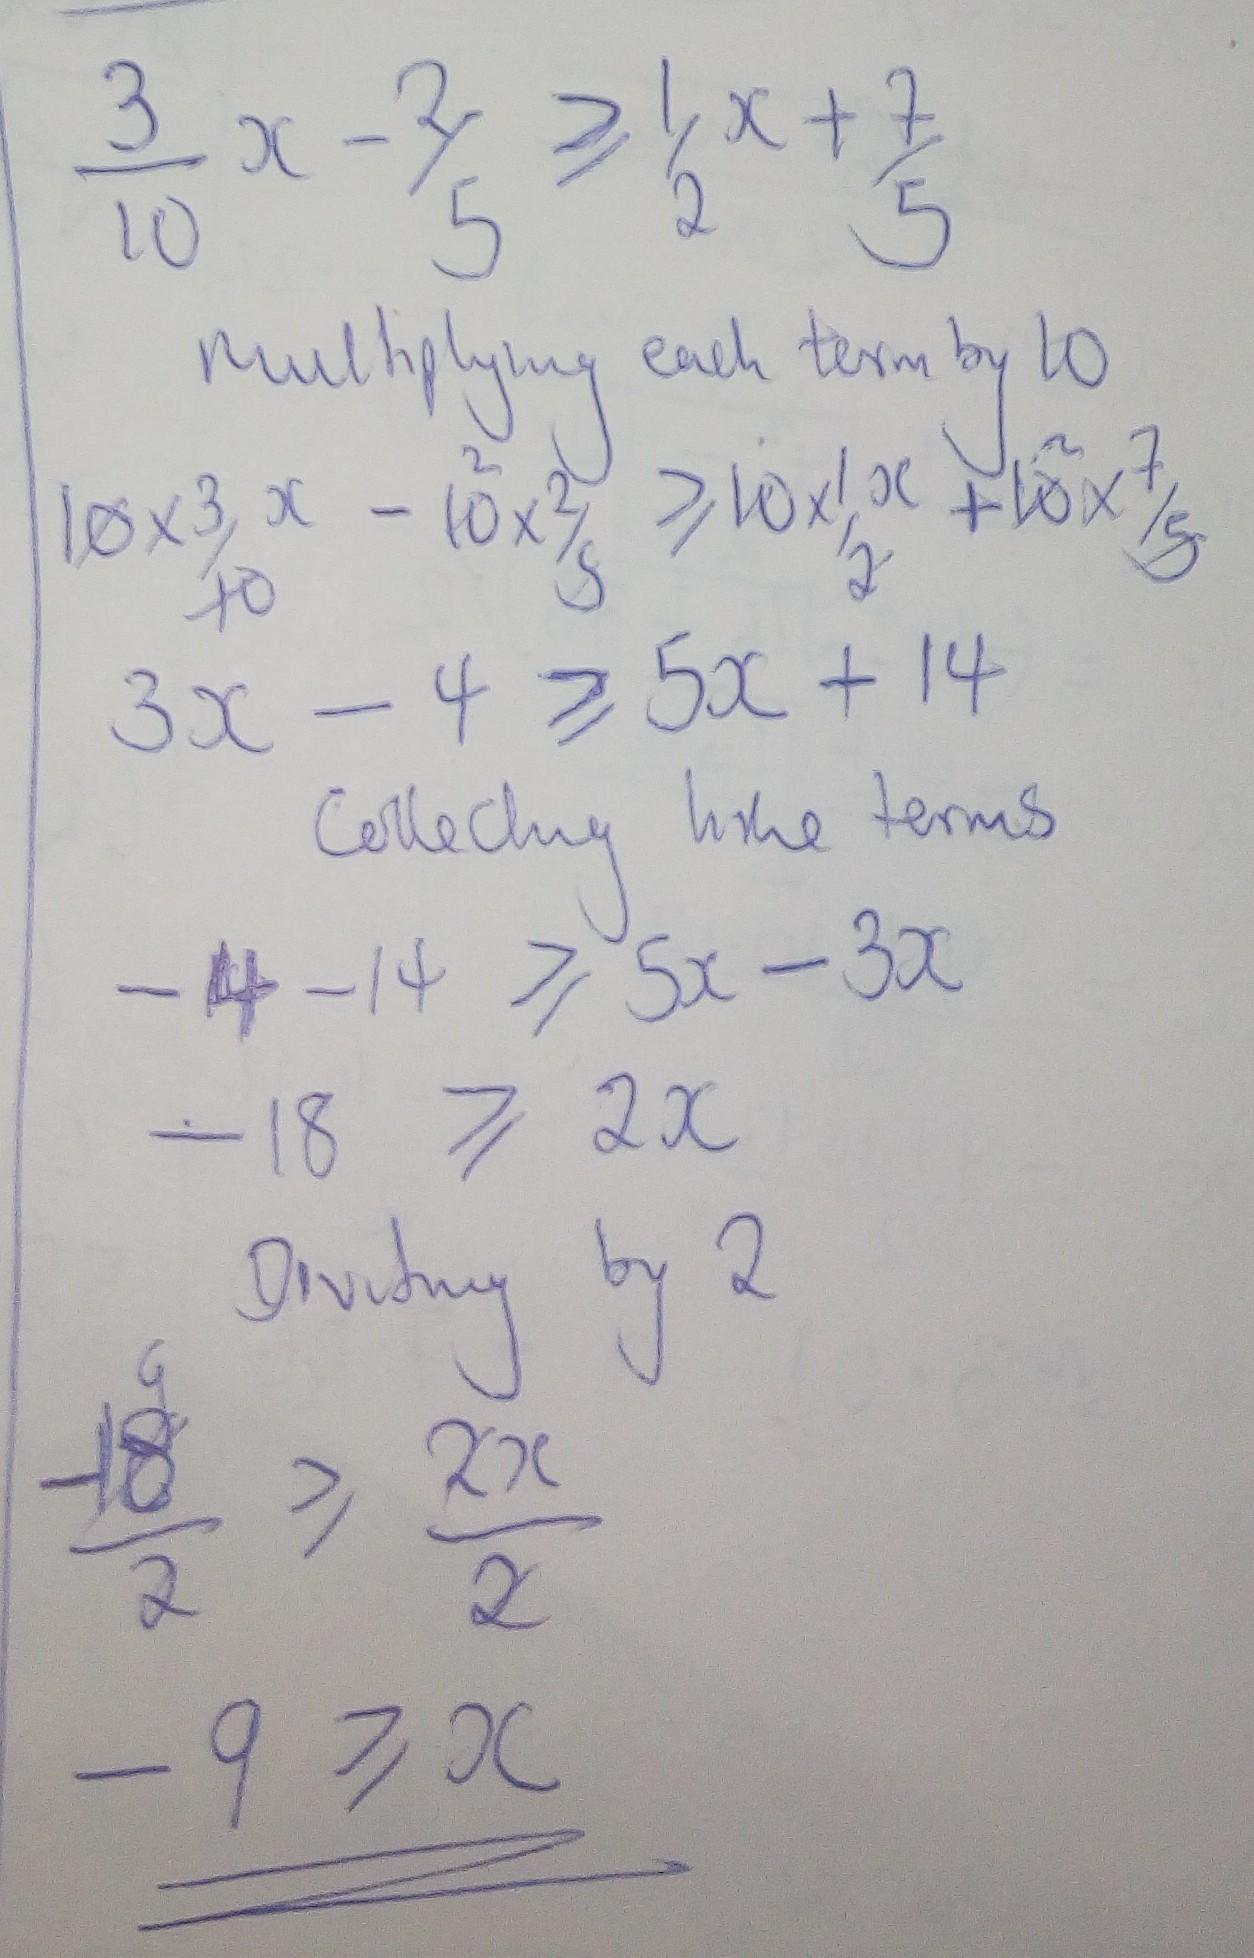 3/10 x - 2/5 ≥ 1/2 x + 7/5
Multiplying each term by 10
10 × 3/10 x - 10 2 × 2/5 ≥ 10 × 1/2 x + 10 2 × 7/5
3x - 4 ≥ 5x + 14
Collecting like terms
-4 - 14 ≥ 5x - 3x
-18 ≥ 2x
Dividing by 2
9
-18/2 ≥ 2x/2
-9 ≥ x